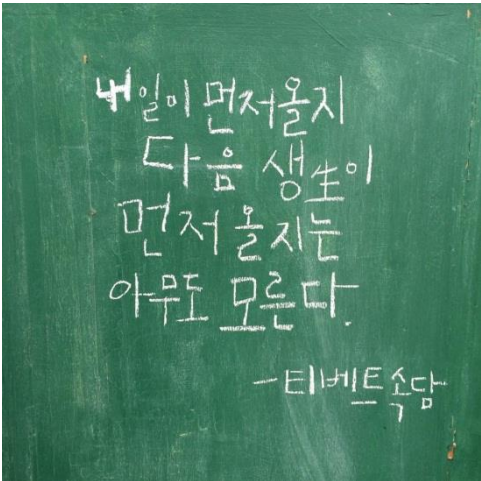 내일이 먼저올지
다음 생生이
먼저 올지는
아무도 모른다.
-티베트속담